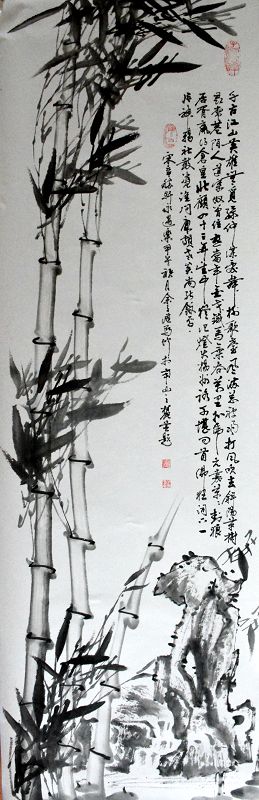 千古江山英雄無覓孫仲謀處舞榭歌臺風流總被雨打風吹去斜陽草樹
尋常巷陌人道寄奴曾住想當年金戈鐵馬氣吞萬里如虎元嘉草草封狼
居胥贏得倉皇北顧四十三年望中猶記烽火揚州路可堪回首佛狸祠下一
片神鴉社鼓憑誰問廉頗老矣尚能飯否
宋辛稼軒永遇樂甲午秋月余寫竹於南山之並題